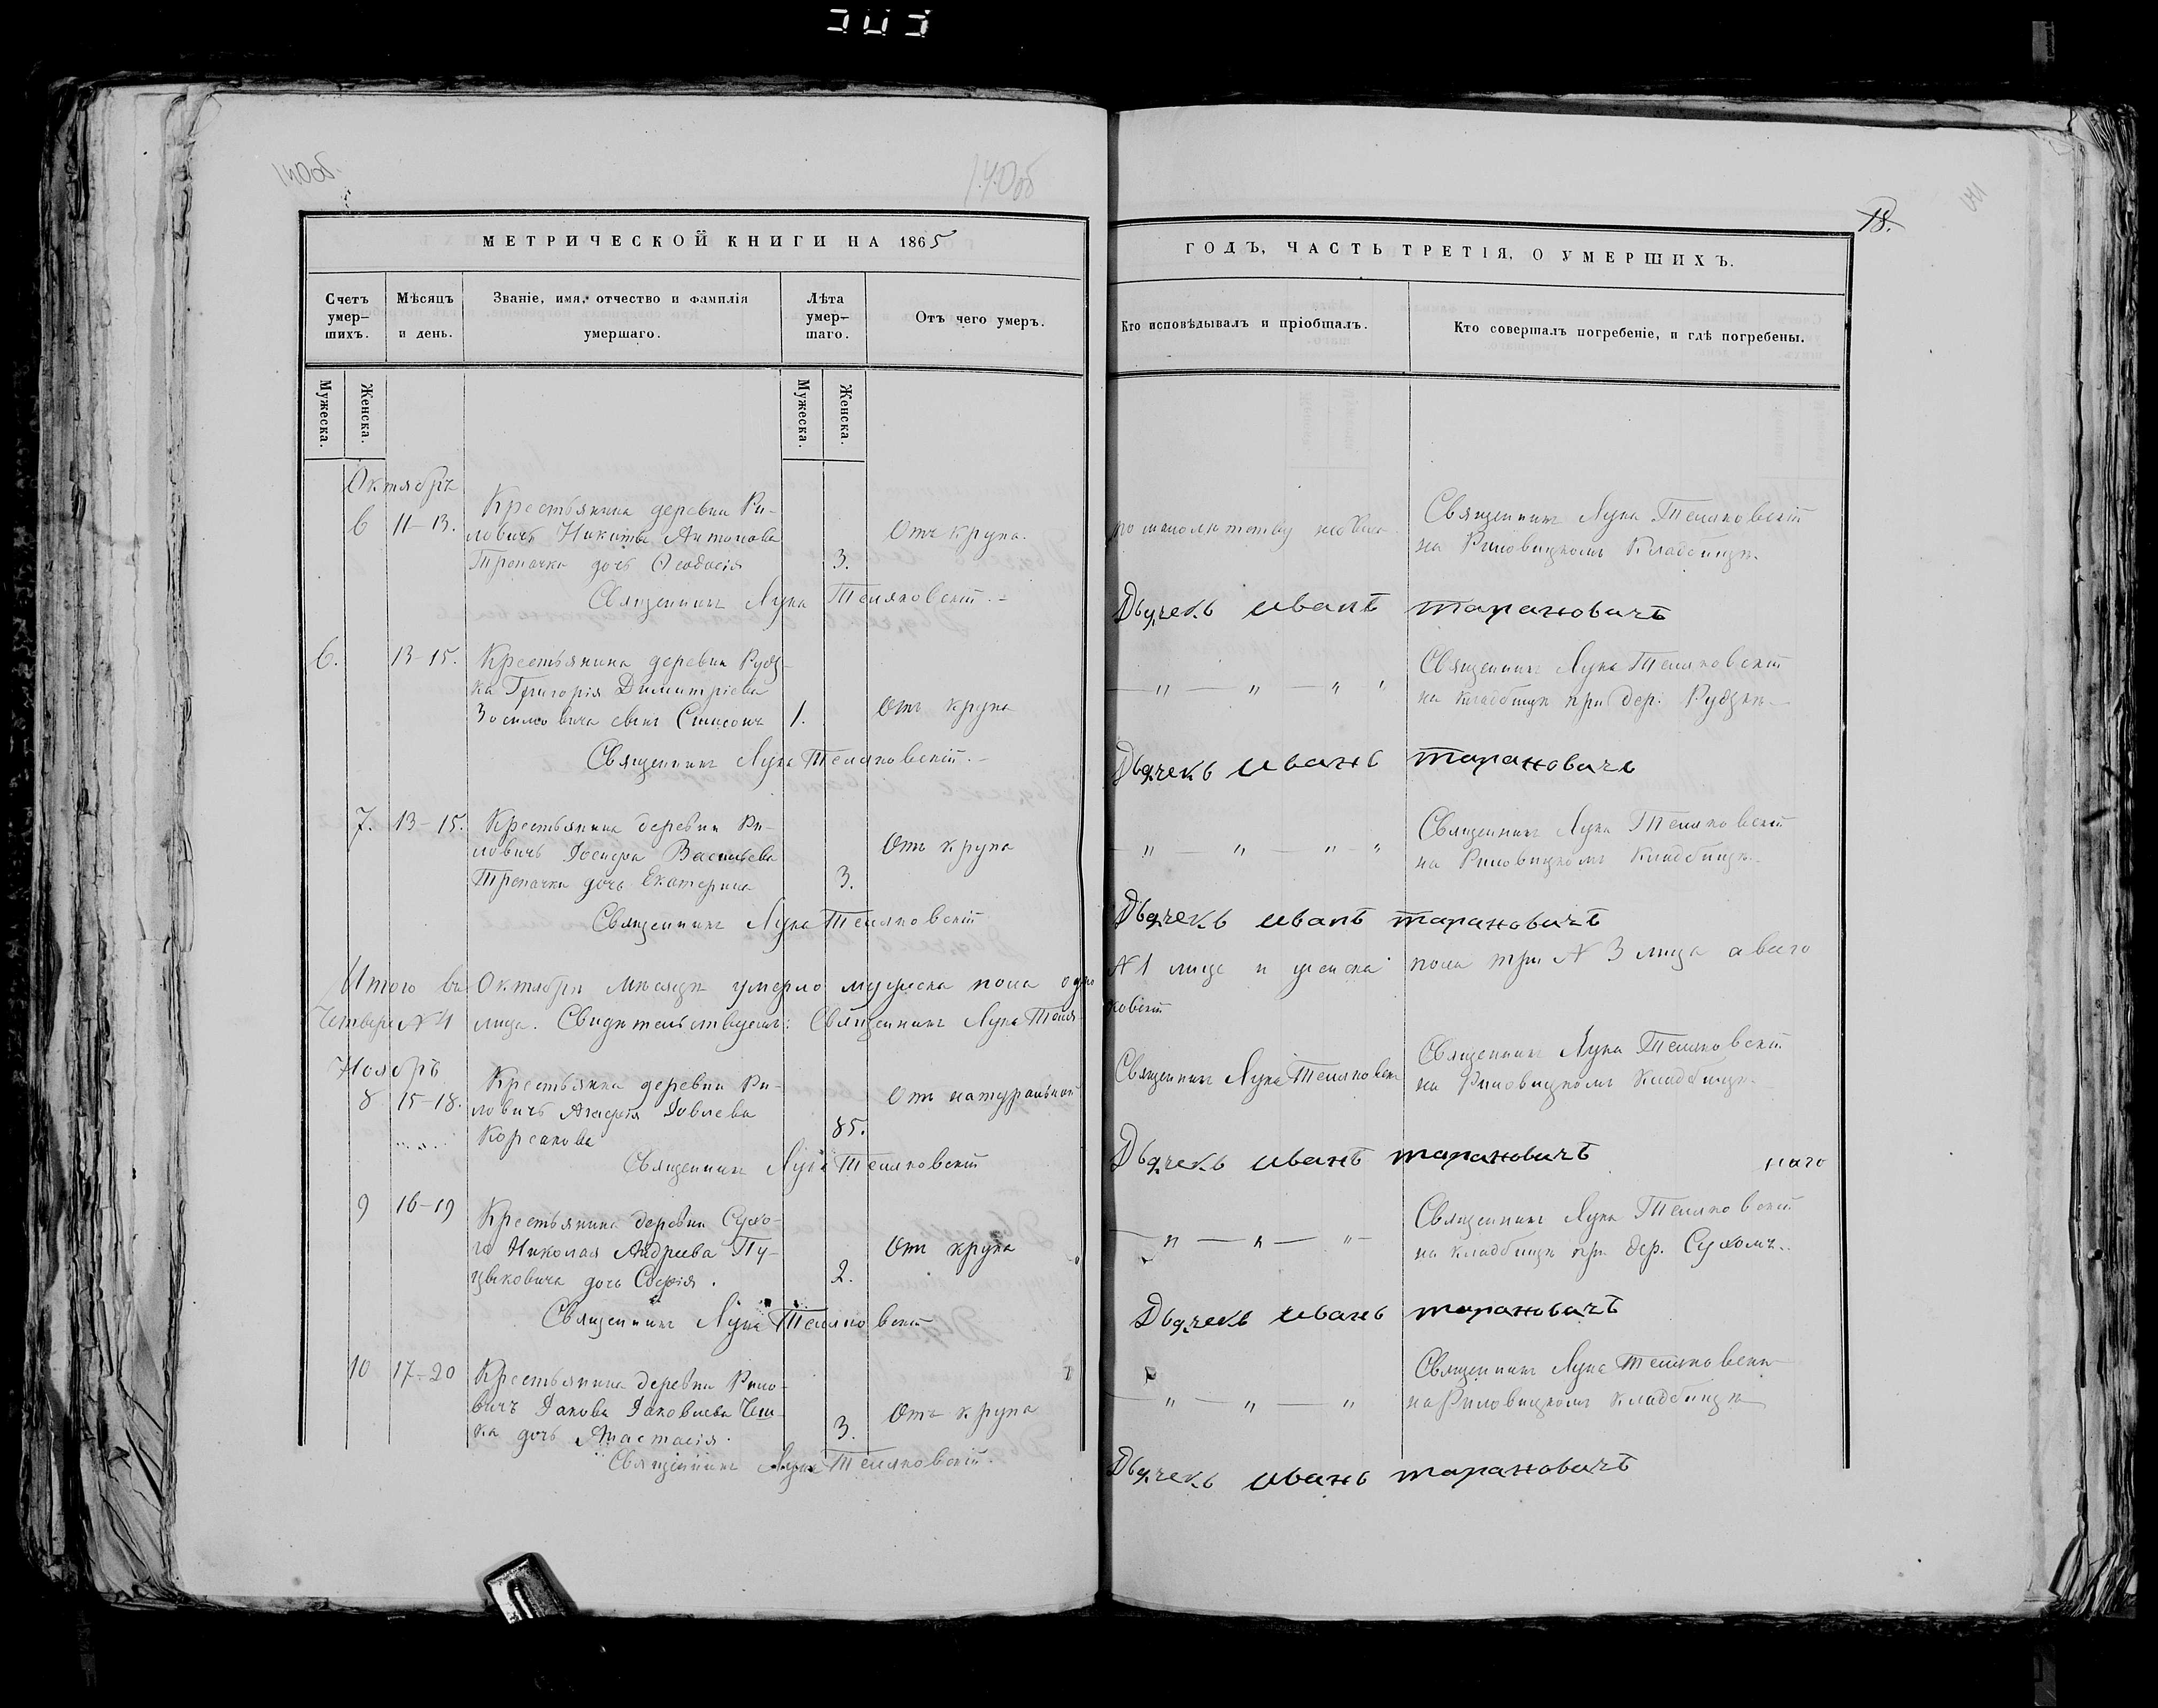 140об.
140об
18.
141
МЕТРИЧЕСКОЙ КНИГИ НА 1865
Счетъ умер-шихъ.
Мѣсяцъ и день.
Званіе, имя, отчество и фамилія умершаго.
Лѣта умер-шаго.
Отъ чего умеръ.
Мужеска.
Женска.
Мужеска.
Женска.
Октябрь
6 11-13. Крестьянина деревни Ри-
ловичъ Никиты Антонова
Трепачка дочь Ѳеодосія 3. Отъ крупа.
Священникъ Лука Теляковскій.
6. 13-15. Крестьянина деревни Рудз-
ка Григорія Димитріева
сынъ Симеонъ 1. Отъ крупа
Священникъ Лука Теляковскій.
7. 13-15. Крестьянина деревни Ри-
ловичъ Іосифа Васильева
Трепачка дочь Екатерина 3. Отъ крупа
Священникъ Лука Теляковскій
Итого въ Октябрѣ мѣсяцѣ умерло мужеска пола одно
Четверо №4 лица. Свидѣтельствуемъ: Священникъ Лука Теля-
Ноябрь
8 15-18. Крестьянка деревни Ри-
ловичъ Агафія Іовлева
Корсакова 85. Отъ натуральной
Священникъ Лука Теляковскій
9 16-19 Крестьянина деревни Сухо-
го Николая Андреева Пу-
цыковича дочь Софія. 2. Отъ крупа
Священникъ Лука Теляковскій
10 17-20 Крестьянина деревни Рило-
вичъ Іакова Іаковлева
ка дочь Анастасія. 3. Отъ крупа
Священникъ Лука Теляковскій.
ГОДЪ, ЧАСТЬ ТРЕТІЯ, О УМЕРШИХЪ.
Кто исповѣдывалъ и пріобщалъ.
Кто совершалъ погребеніе, и гдѣ погребены.
по малолѣтству
Священникъ Лука Теляковскій
на Риловицкомъ Кладбищѣ.
Дьячекъ Иванъ Тарановичъ
— " — " — " "
Священникъ Лука Теляковскій
на кладбищѣ при дер. Рудзкѣ
Дьячекъ Иванъ Тарановичъ
— " — " — " "
Священникъ Лука Теляковскій
на Риловицкомъ Кладбищѣ.
Дьячекъ Иванъ Тарановичъ
№ 1 лице и женска пола три № 3 лица а всего
ковскій
Священникъ Лука Теляковскій
Священникъ Лука Теляковскій
на Риловицкомъ Кладбищѣ.
Дьячекъ Иванъ Тарановичъ
— " — " — " —
Священникъ Лука Теляковскій
на кладбищѣ при дер. Сухомъ.
Дьячекъ Иванъ Тарановичъ
— " — " — "
Священникъ Лука Теляковскій
на Риловицкомъ Кладбищѣ
Дьячекъ Иванъ Тарановичъ